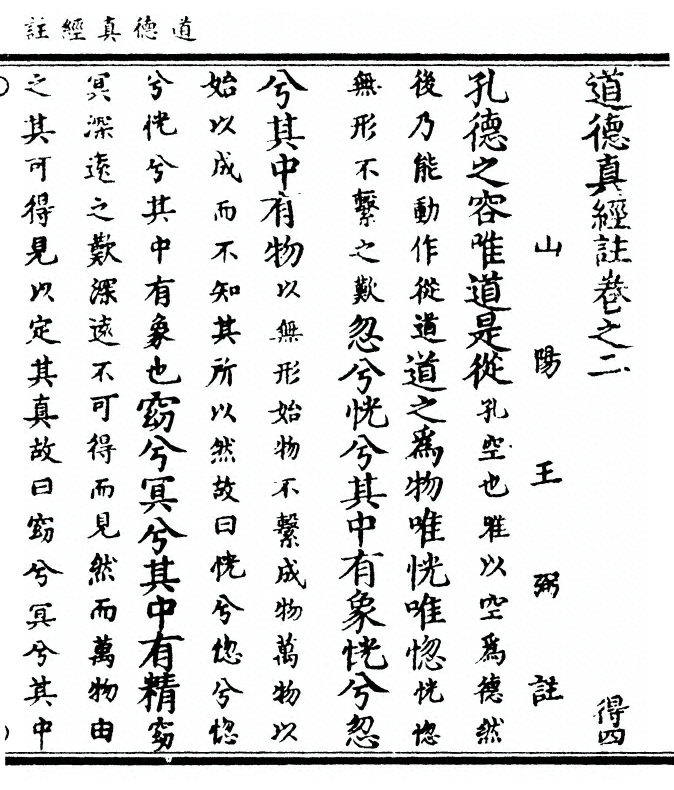 道德真經註
道德真經註卷之二 得四
山陽王弼註
孔德之容唯道是從孔空也唯以空爲德然
後乃能動作從道道之爲物唯恍唯惚恍惚
無形不繫之歎忽兮恍兮其中有象恍兮忽
兮其中有物以無形始物不繫成物萬物以
始以成而不知其所以然故曰恍兮惚兮惚
兮恍兮其中有象也窈兮冥兮其中有精窈
冥深遠之歎深遠不可得而見然而萬物由
之其可得見以定其真故曰窈兮冥兮其中